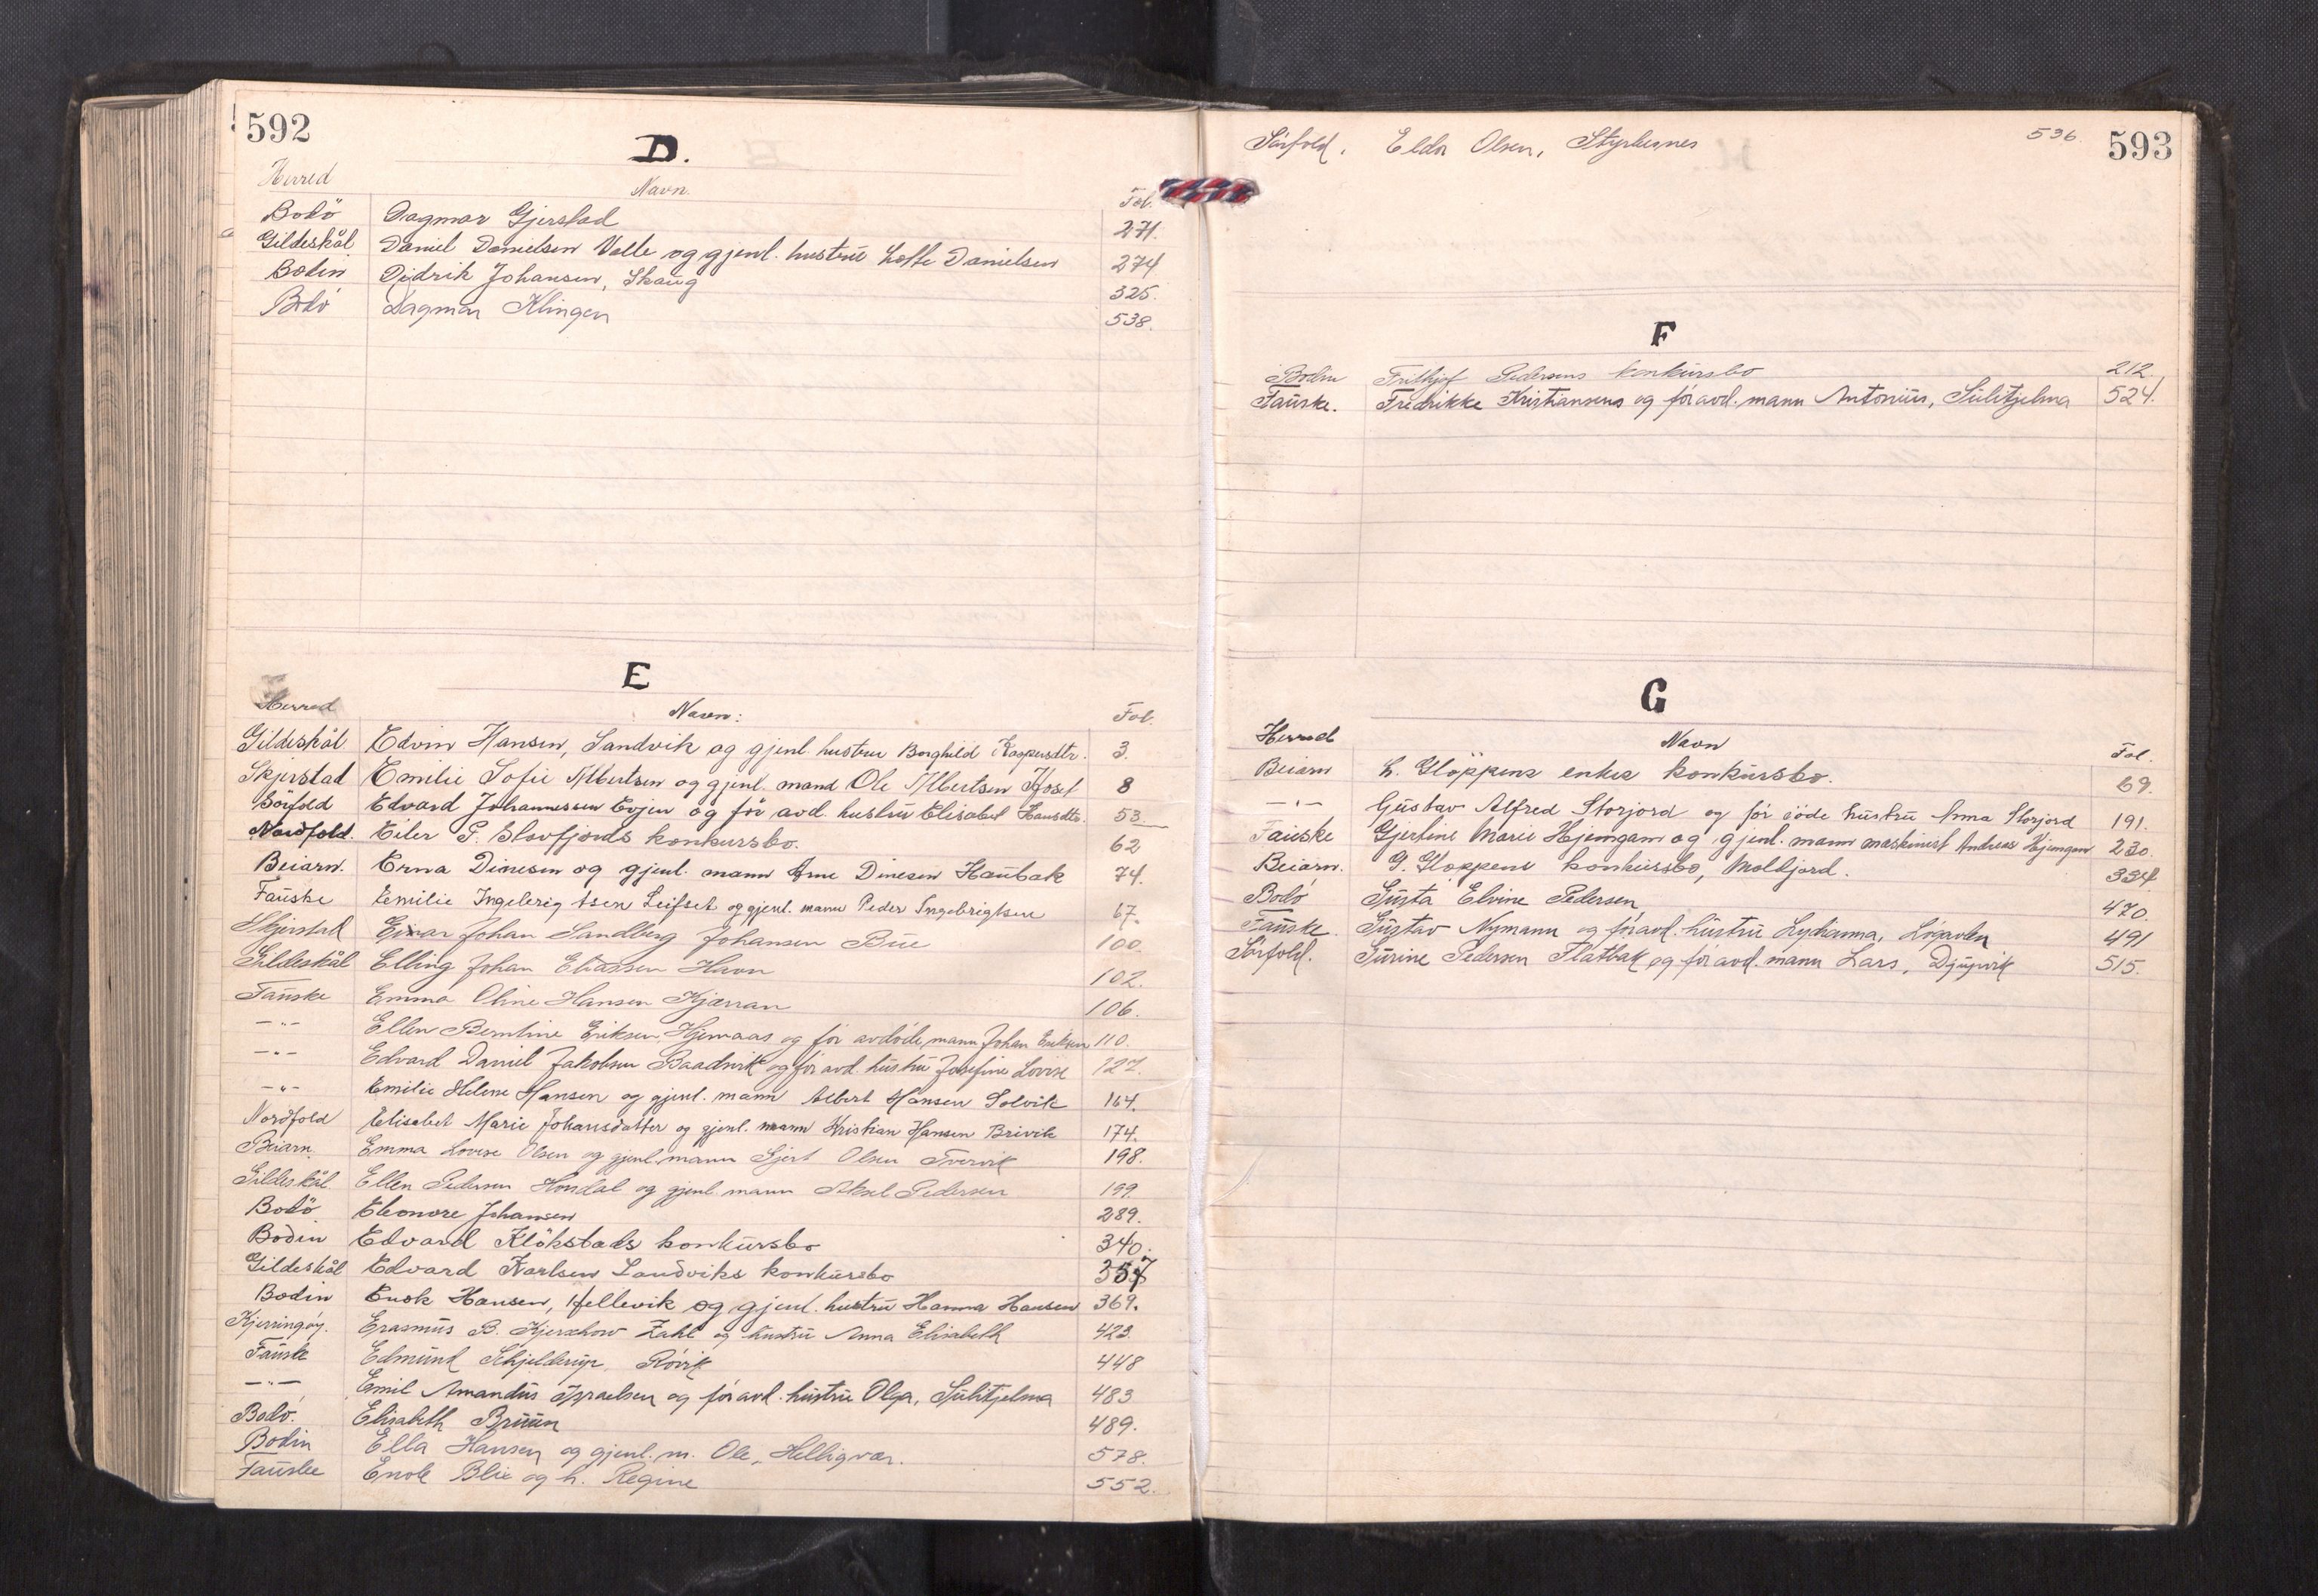 592
D.
Herred Navn. Fol.
Bodö Dagmar Gjerstad 271.
Gildeskål Daniel Danielsen Valle og gjenl. hustrü Lotte Danielsen 274
Bodin Didrik Johansen, Skaug 325.
Bodö Dagmar Klingen 538.
E
Herred Navn: Fol.
Gildeskål Edvin Hansen, Sandvik og gjenl. hustru Borghild Kaspersdtr. 3.
Skjerstad Emilie Sofie Albertsen og gjenl. mand Ole Albertsen 8
Sörfold Edvard Johannessen Evjen og för avd. hustrü Elisabet Hansdtr. 53.
Nordfold. Eiler P. Storfjords konkursbo. 62
Beiarn. Erna Dinesen og gjenl. mann Arne Dinesen Haubak 74.
Faüske Emilie Ingebrigtsen Leifset og gjenl. mann Peder Ingebrigtsen 67.
Skjerstad Einar Johan Sandberg Johansen Büe 100.
Gildeskål Elling Johan Eliassen Havn 102.
Faüske Emma Oline Hansen Kjærran 106.
—"— Ellen Berntine Eriksen, Hjemaas og för avdöde mann Johan Eriksen 110.
—"— Edvard Daniel Jakobsen Baadsvik og för avd. hüstrü Josefine Lovise 127.
—"— Emilie Helene Hansen og gjenl. mann Albert Hansen Solvik 164.
Nordfold Elisabet Marie Johansdatter og gjenl. mann Kristian Hansen Brivik 174.
Beiarn. Emma Lovise Olsen og gjenl. mann Gjert Olsen Tvervik 198.
Gildeskål. Ellen Pedersen Horsdal og gjenl. mann Aksel Pedersen 199.
Bodö Eleonore Johansen 289.
Bodin Edvard Klökstads konkürsbo 340.
Gildeskål Edvard Karlsen Sandviks konkürsbo 357
Bodin Enok Hansen, Hellevik og gjenl. hustrü Hanna Hansen 369.
Kjerringöy. Erasmüs B. Kjerschow Zahl og hustrü Anna Elisabeth 423
Faüske Edmünd Schjelderup, Rövik 448
—"— Emil Amandüs Israelsen og för avd. hüstrü Olga, Sülitjelma 483
Bodö. Elisabeth Brüün 489.
Bodin Ella Hansen og gjenl. m. Ole, Helligvær. 578.
Faüske Enok Blie og h. Regine 552.
593
Sörfold. Elda Olsen, Styrkesnes 536.
F
Bodin Frithjof Pedersens konkürsbo 212.
Faüske. Fredrikke Kristiansens og för avd. mann Antonius, Sülitjelma 524.
G
Herred Navn Fol.
Beiarn L. Gloppens enkes konkürsbo. 69.
—"— Güstav Alfred Storjord og för döde hüstrü Anna Storjord 191.
Faüske Gjertine Marie Hjemgam og gjenl. mann maskinist Andreas Hjemgam 230.
Beiarn. G. Gloppens konkürsbo, Moldjord. 334
Bodö Güsta Elvine Pedersen 470.
Faüske. Güstav Nymann og för avd. hüstrü Lydianna, 491
Sörfold. Gürine Pedersen Flatbak og för avd. mann Lars, Djüpvik 515.